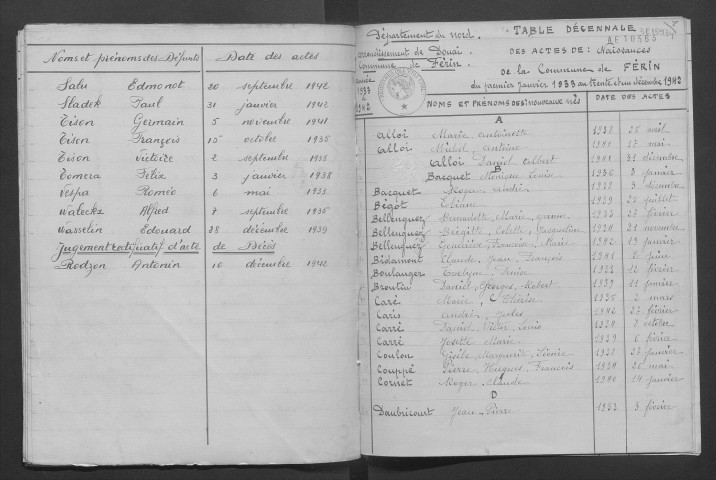 Noms et prénoms des Défunts Date des actes
Salu Edmonot 20 septembre 1942
Sladek Paul 31 janvier 1942
Tison Germain 5 novembre 1941
Tison François 15 octobre 1935
Tison Victoire 2 septembre
Tomera Félix 3 janvier 1938
Vespa Roméo 6 mai 1933
Walecks Alfred 7 septembre 1935
Wasselin Edouard 28 décembre 1939
Jugement rectificatif d'acte de Décès
Rodzon Antonin 10 décembre 1942
Département du nord.
arrondissement de Douai
Commune de Férin.
année
1933
à
1942
TABLE DÉCENNALE
DES ACTES DE: Naissances
de la Commune de FÉRIN
du premier janvier 1933 au trente et un décembre 1942
NOMS ET PRÉNOMS DES nouveaux nés DATE DES ACTES
A
Alloi Marie Antoinette 25 avril
Alloi Michel Antoine mai
Alloi Daniel Albert 1941 31 décembre
B
Bacquet Monique Louise 1936 3 janvier
Bacquet Roger André décembre
Bégot Eliane juillet
Bellenguez Bernadette Marie février
Bellenguez Brigitte Colette Jacqueline 21 novembre
Bellenguez Geneviève Francine Marie 1942 13 janvier
Bédamont Claude Jean François 1941 juin
Boulanger Evelyne 12 février
Broutin Daniel Georges Robert 1939 11 janvier
C
Caré Marie Thérèse 1935 2 mars
Caris André Jules 1942 27 février
Carré Daniel Victor Louis octobre
Carré Josette Marie 1939 6 février
Coulon Gisèle Marguerite Léonie janvier
Couppé Pierre Hugues François mai
Cornet Roger Claude 1940 14 janvier
D
Daubricourt Jean Pierre 1933 3 février